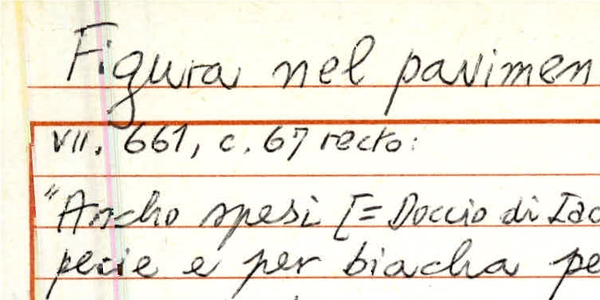 Figura nel pavimen
VII. 661, c. 67 recto:
"Ancho spesi [= Doccio di Iac
pecie e per biacha pe